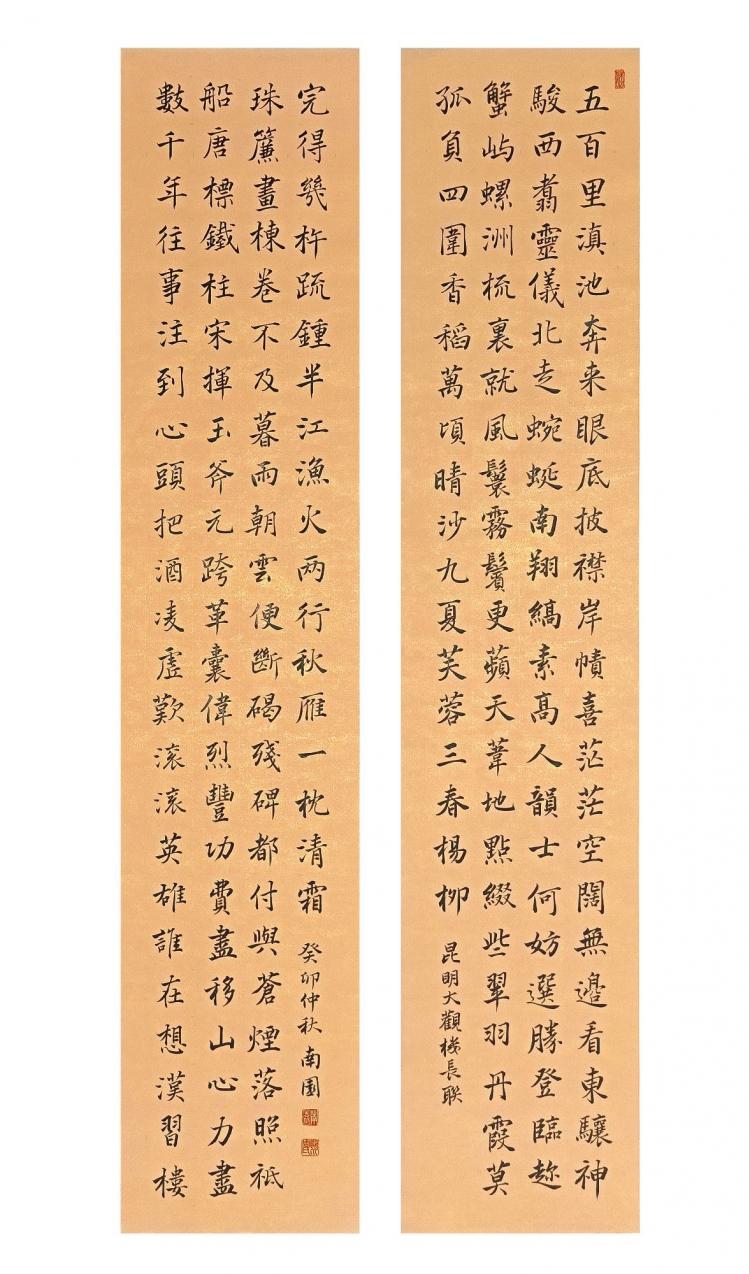 五百里滇池奔来眼底披襟岸幘喜茫茫空闊無邊看東驤神
駿西翥靈儀北走蜿蜒南翔縞素高人韻士何妨選勝登臨趂
蟹屿螺洲梳裏就風鬟霧鬢更蘋天葦地點綴些翠羽丹霞莫
孤負四圍香稻萬頃晴沙九夏芙蓉三春楊柳
昆明大觀楼長联
數千年往事注到心頭把酒凌虛歎滾滾英雄誰在想漢習樓
船唐標鐵柱宋揮玉斧元跨革囊偉烈豐功費盡移山心力盡
珠簾畫棟卷不及暮雨朝雲便斷碣殘碑都付與蒼煙落照祇
完得幾杵疏鍾半江漁火两行秋雁一枕清霜
癸卯仲秋南園